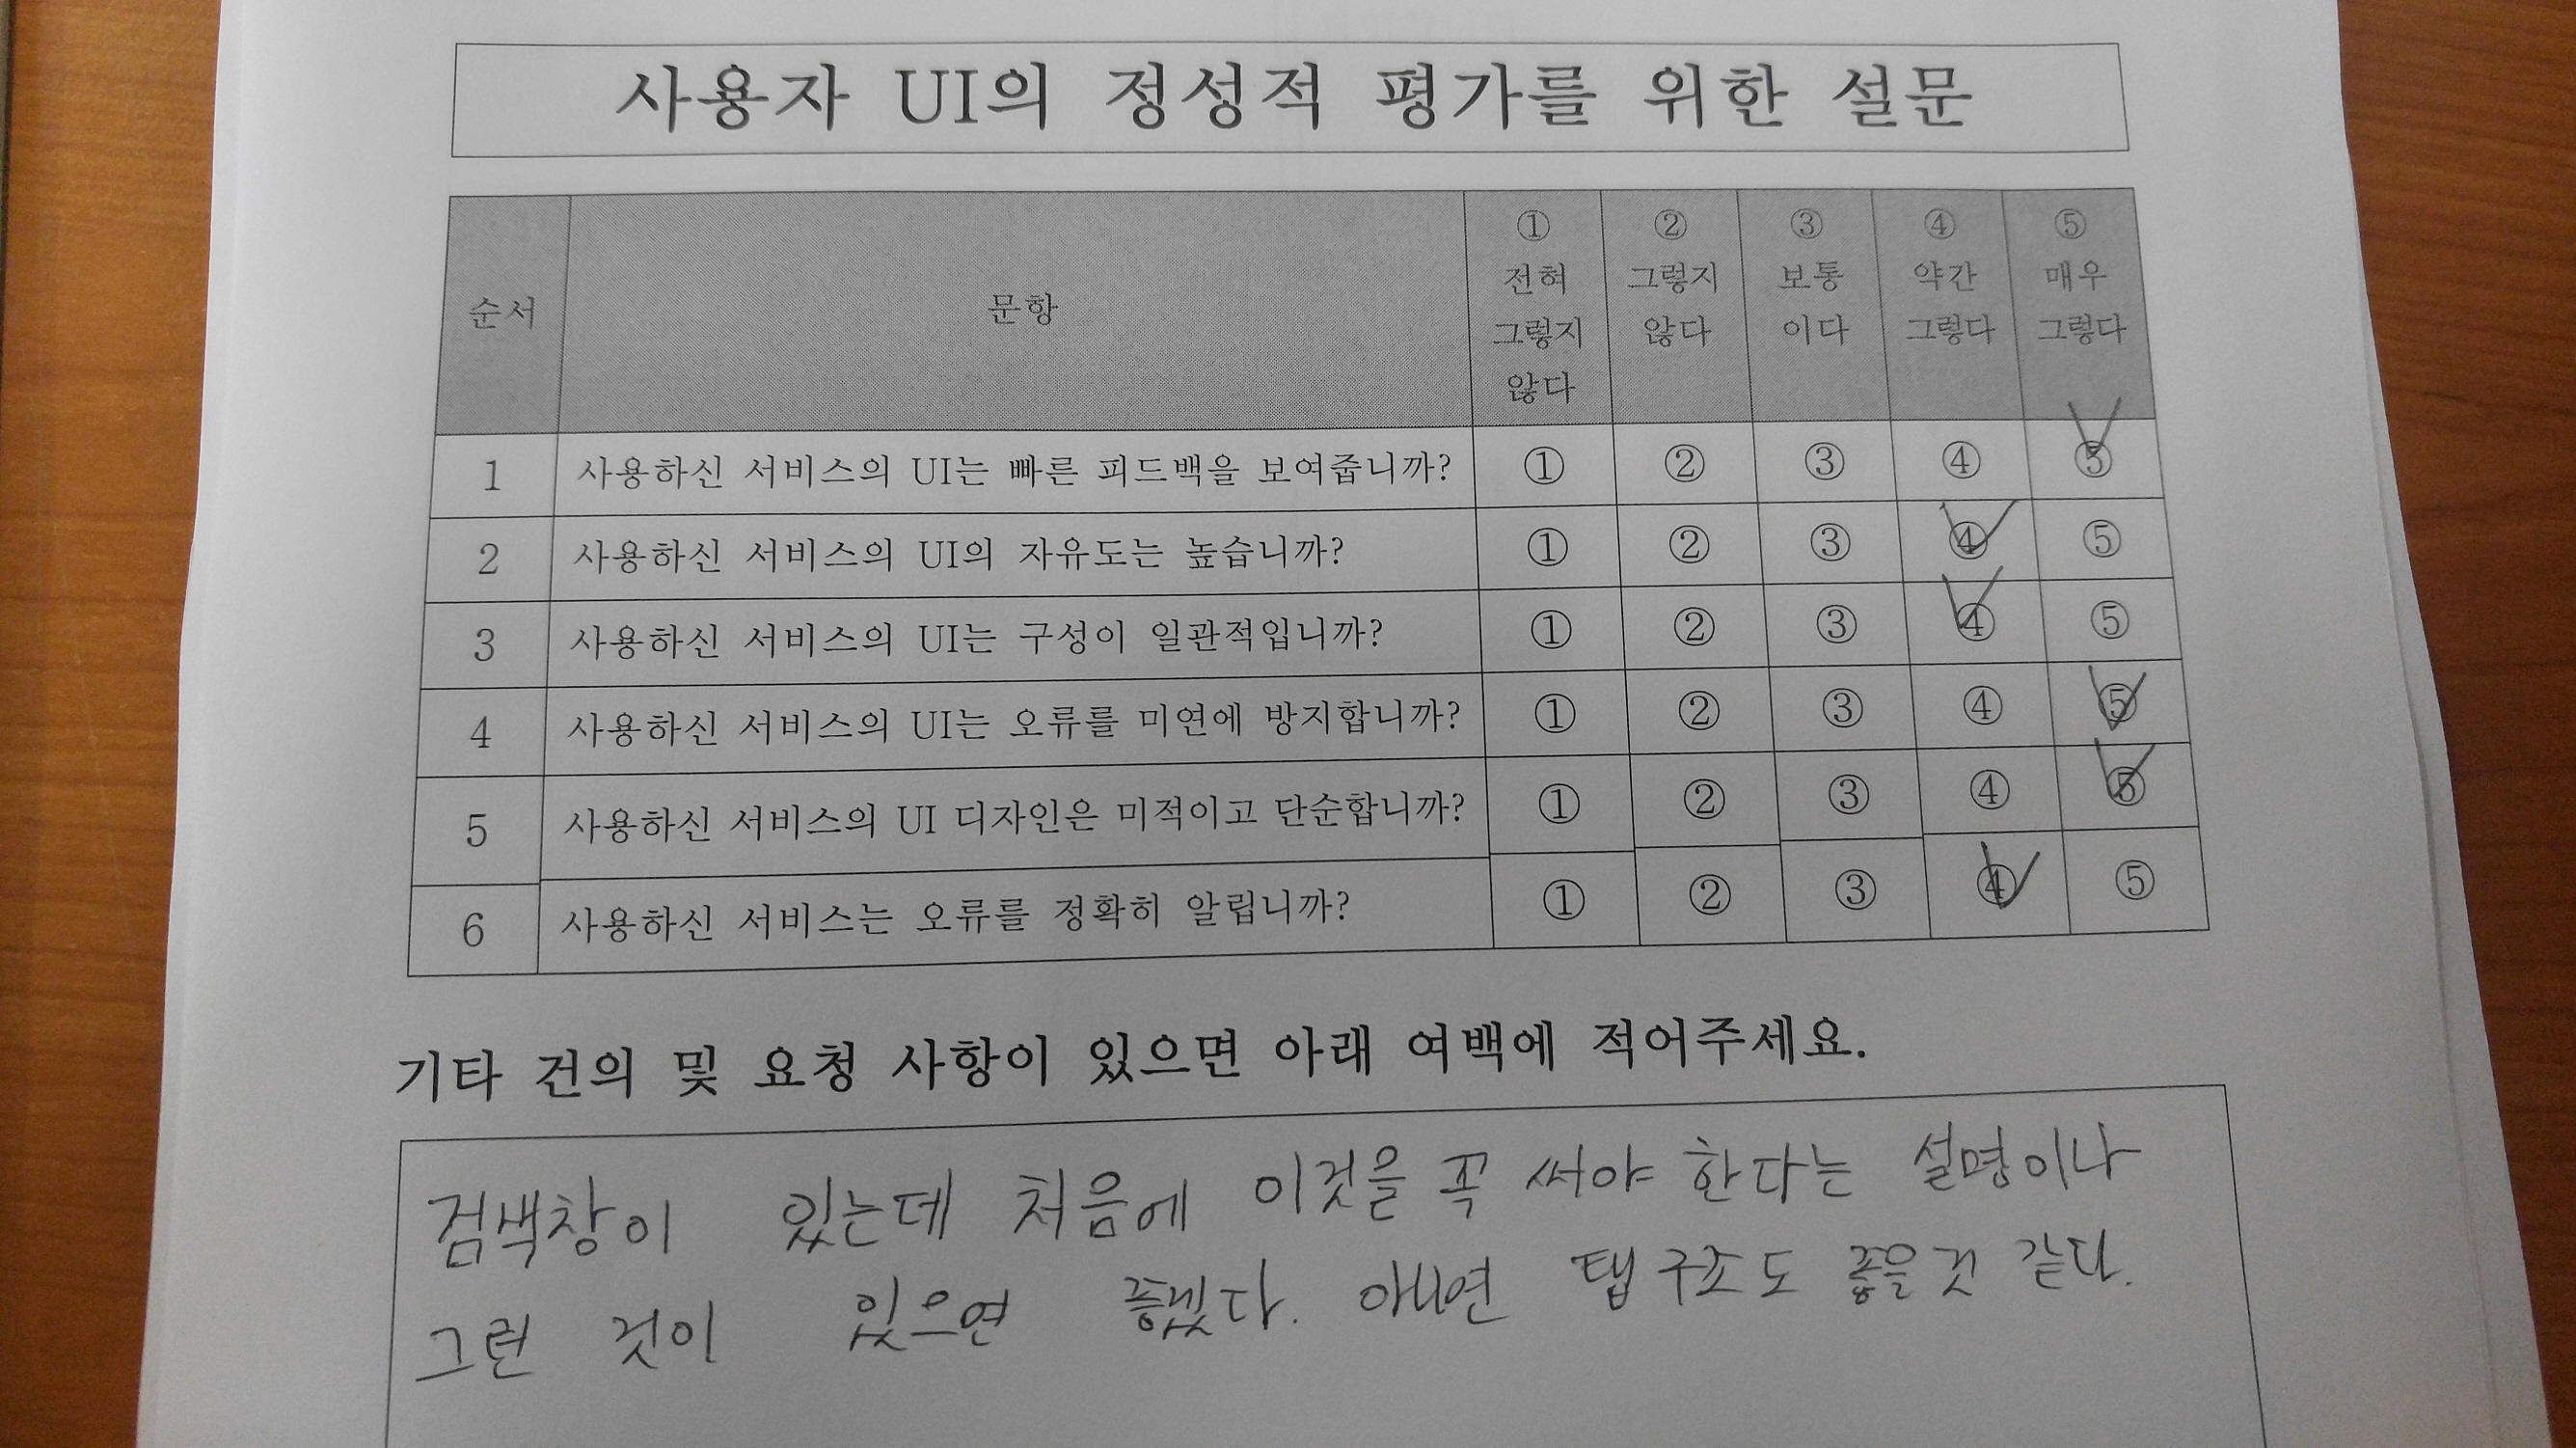 사용자 UI의 정성적 평가를 위한 설문
순서 문항 ① 전혀 그렇지 않다 ② 그렇지 않다 ③ 보통 이다 ④ 약간 그렇다 ⑤ 매우 그렇다
1 사용하신 서비스의 UI는 빠른 피드백을 보여줍니까? ① ② ③ ④ ⑤
2 사용하신 서비스의 UI의 자유도는 높습니까? ① ② ③ ④ ⑤
3 사용하신 서비스의 UI는 구성이 일관적입니까? ① ② ③ ④ ⑤
4 사용하신 서비스의 UI는 오류를 미연에 방지합니까? ① ② ③ ④ ⑤
5 사용하신 서비스의 UI 디자인은 미적이고 단순합니까? ① ② ③ ④ ⑤
6 사용하신 서비스는 오류를 정확히 알립니까? ① ② ③ ④ ⑤
기타 건의 및 요청 사항이 있으면 아래 여백에 적어주세요.
검색창이 있는데 처음에 이것을 꼭 써야 한다는 설명이나
그런 것이 있으면 좋겠다. 아니면 탭구조도 좋을것 같다.